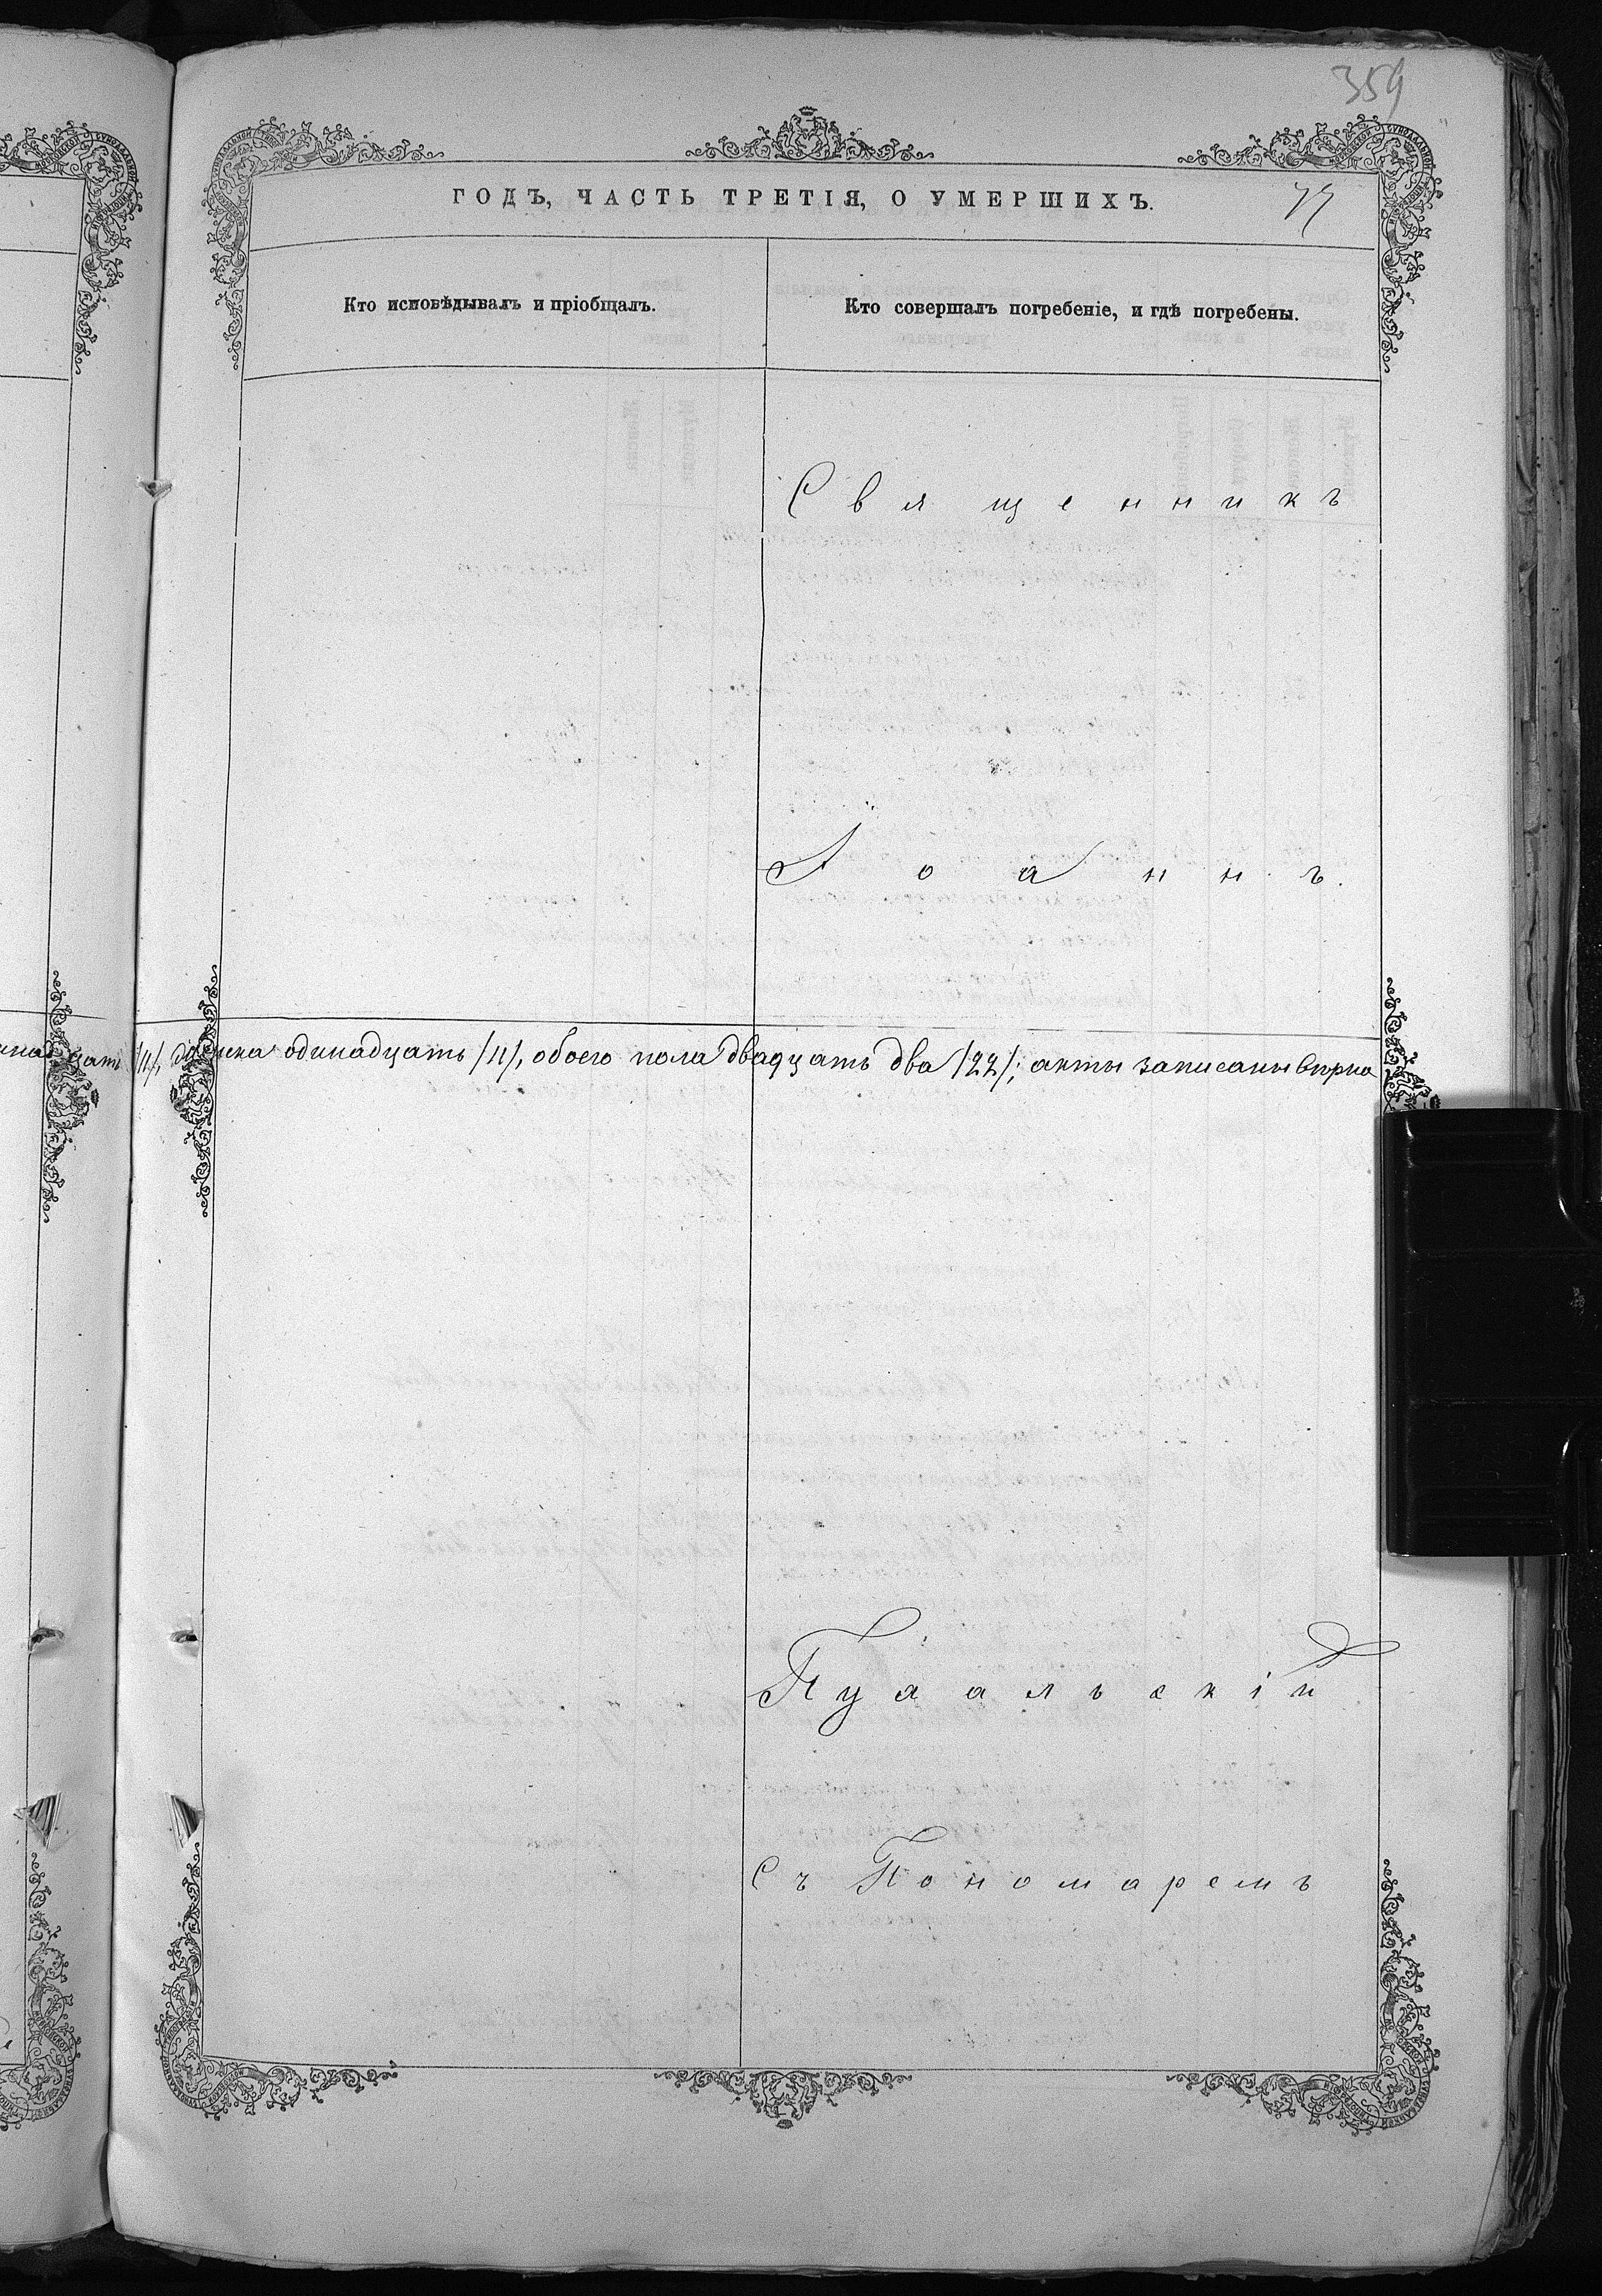 359
ГОДЪ, ЧАСТЬ ТРЕТІЯ, О УМЕРШИХЪ.
Кто исповѣдывалъ и пріобщалъ.
Кто совершалъ погребеніе, и гдѣ погребены.
Священникъ
Іоаннъ.
цать /11/, одинадцать /11/, обоего пола двадцать два /22/; акты записаны вѣрно
Съ Пономаремъ